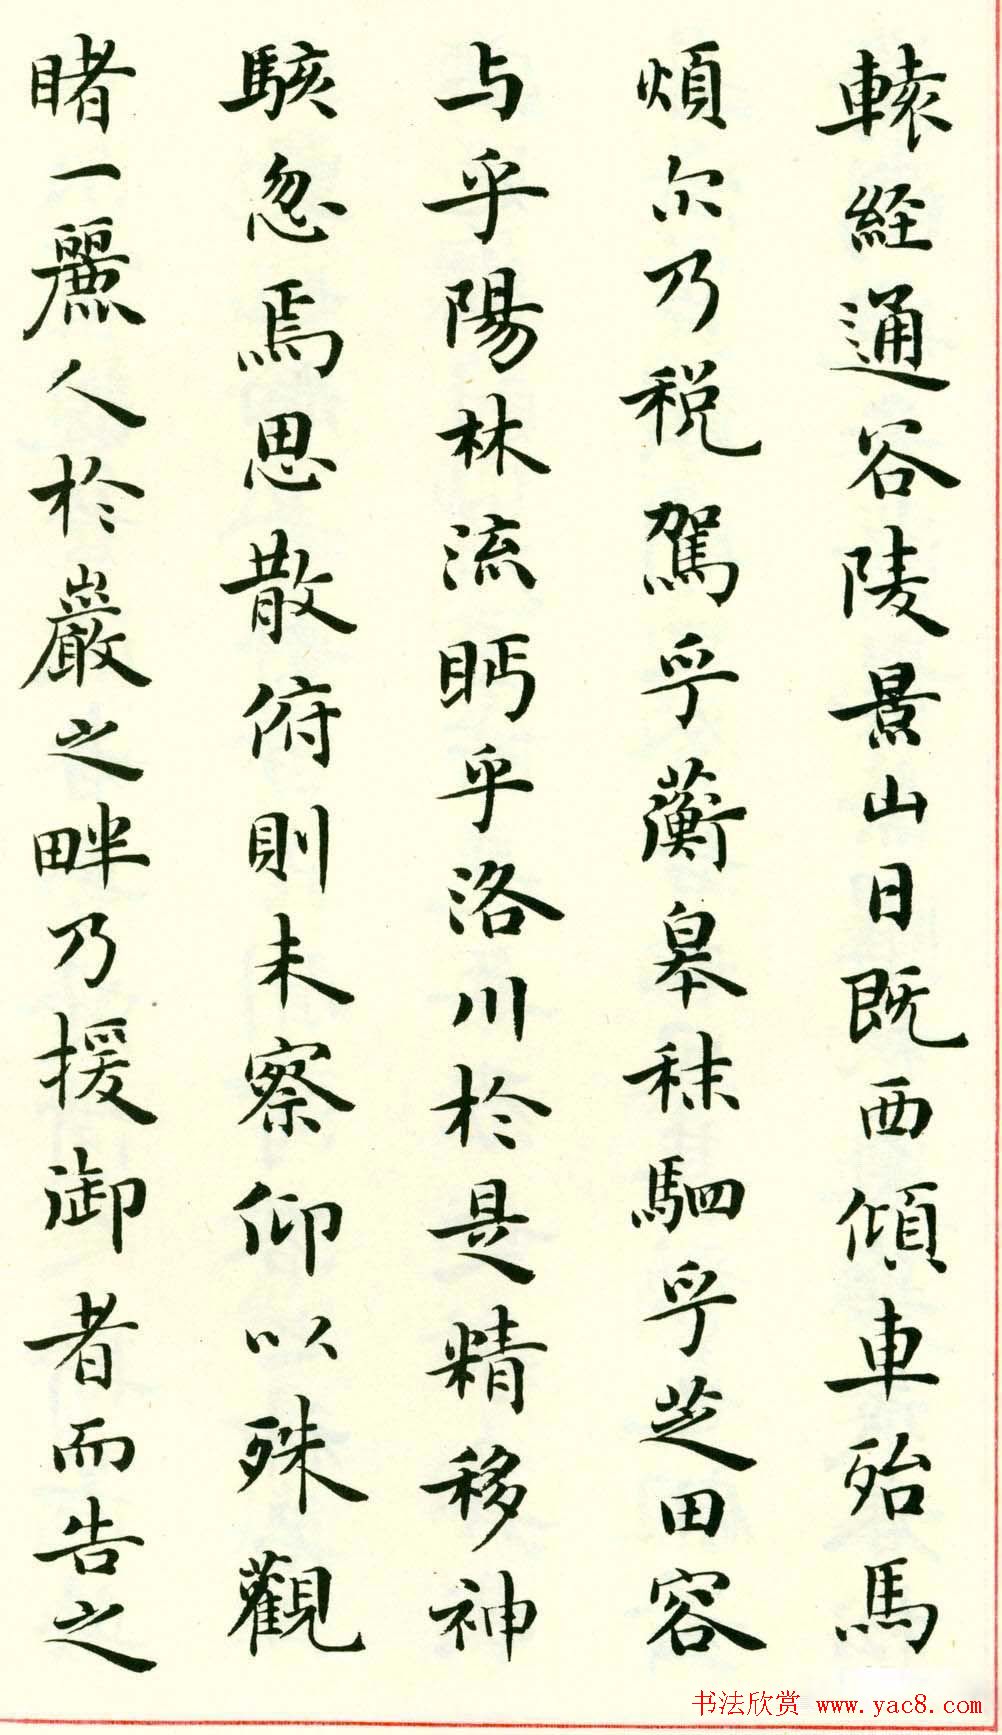 轅經通谷陵景山日既西傾車殆馬
煩尔乃税駕乎蘅皋秣駟乎芝田容
与乎陽林流眄乎洛川於是精移神
駭忽焉思散俯則未察仰以殊觀
睹一麗人於巖之畔乃援御者而告之
书法欣赏 www.yac8.com